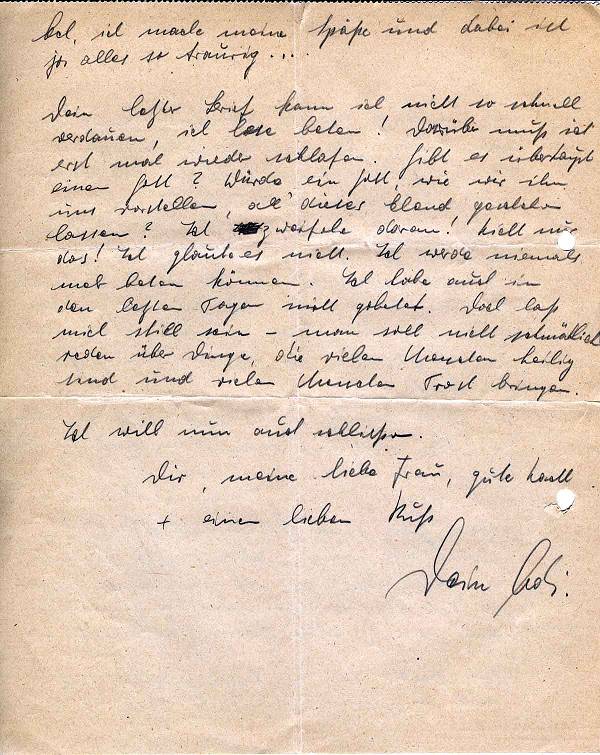 ich mache meine Späße und dabei ist
ja alles so traurig...
Dein letzter Brief kann ich nicht so schnell
verdauen, ich lese beten! Darüber muß ich
erst mal wieder schlafen. Gibt es überhaupt
einen Gott? Würde ein Gott, wie wir ihn
uns vorstellen, all' dieses Elend geschehen
lassen? Ich zweifele daran! Nicht nur
das! Ich glaube es nicht. Ich werde niemals
mehr beten können. Ich habe auch in
den letzten Tagen nicht gebetet. Doch laß
mich still sein – man soll nicht schmählich
reden über Dinge, die vielen Menschen heilig
sind und vielen Menschen Trost bringen.
Ich will nun auch schließen.
Dir, meine liebe Frau, gute Nacht
+ einen lieben Kuß
Dein